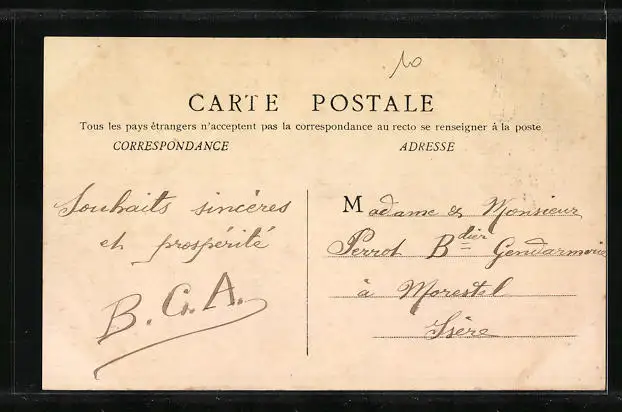 10
CARTE POSTALE
Tous les pays étrangers n'acceptent pas la correspondance au recto se renseigner à la poste
CORRESPONDANCE
ADRESSE
Souhaits sincères
et prospérité
B. G. A.
Madame & Monsieur
Perrot Bdier Gendarmerie
à Morestel
Isère